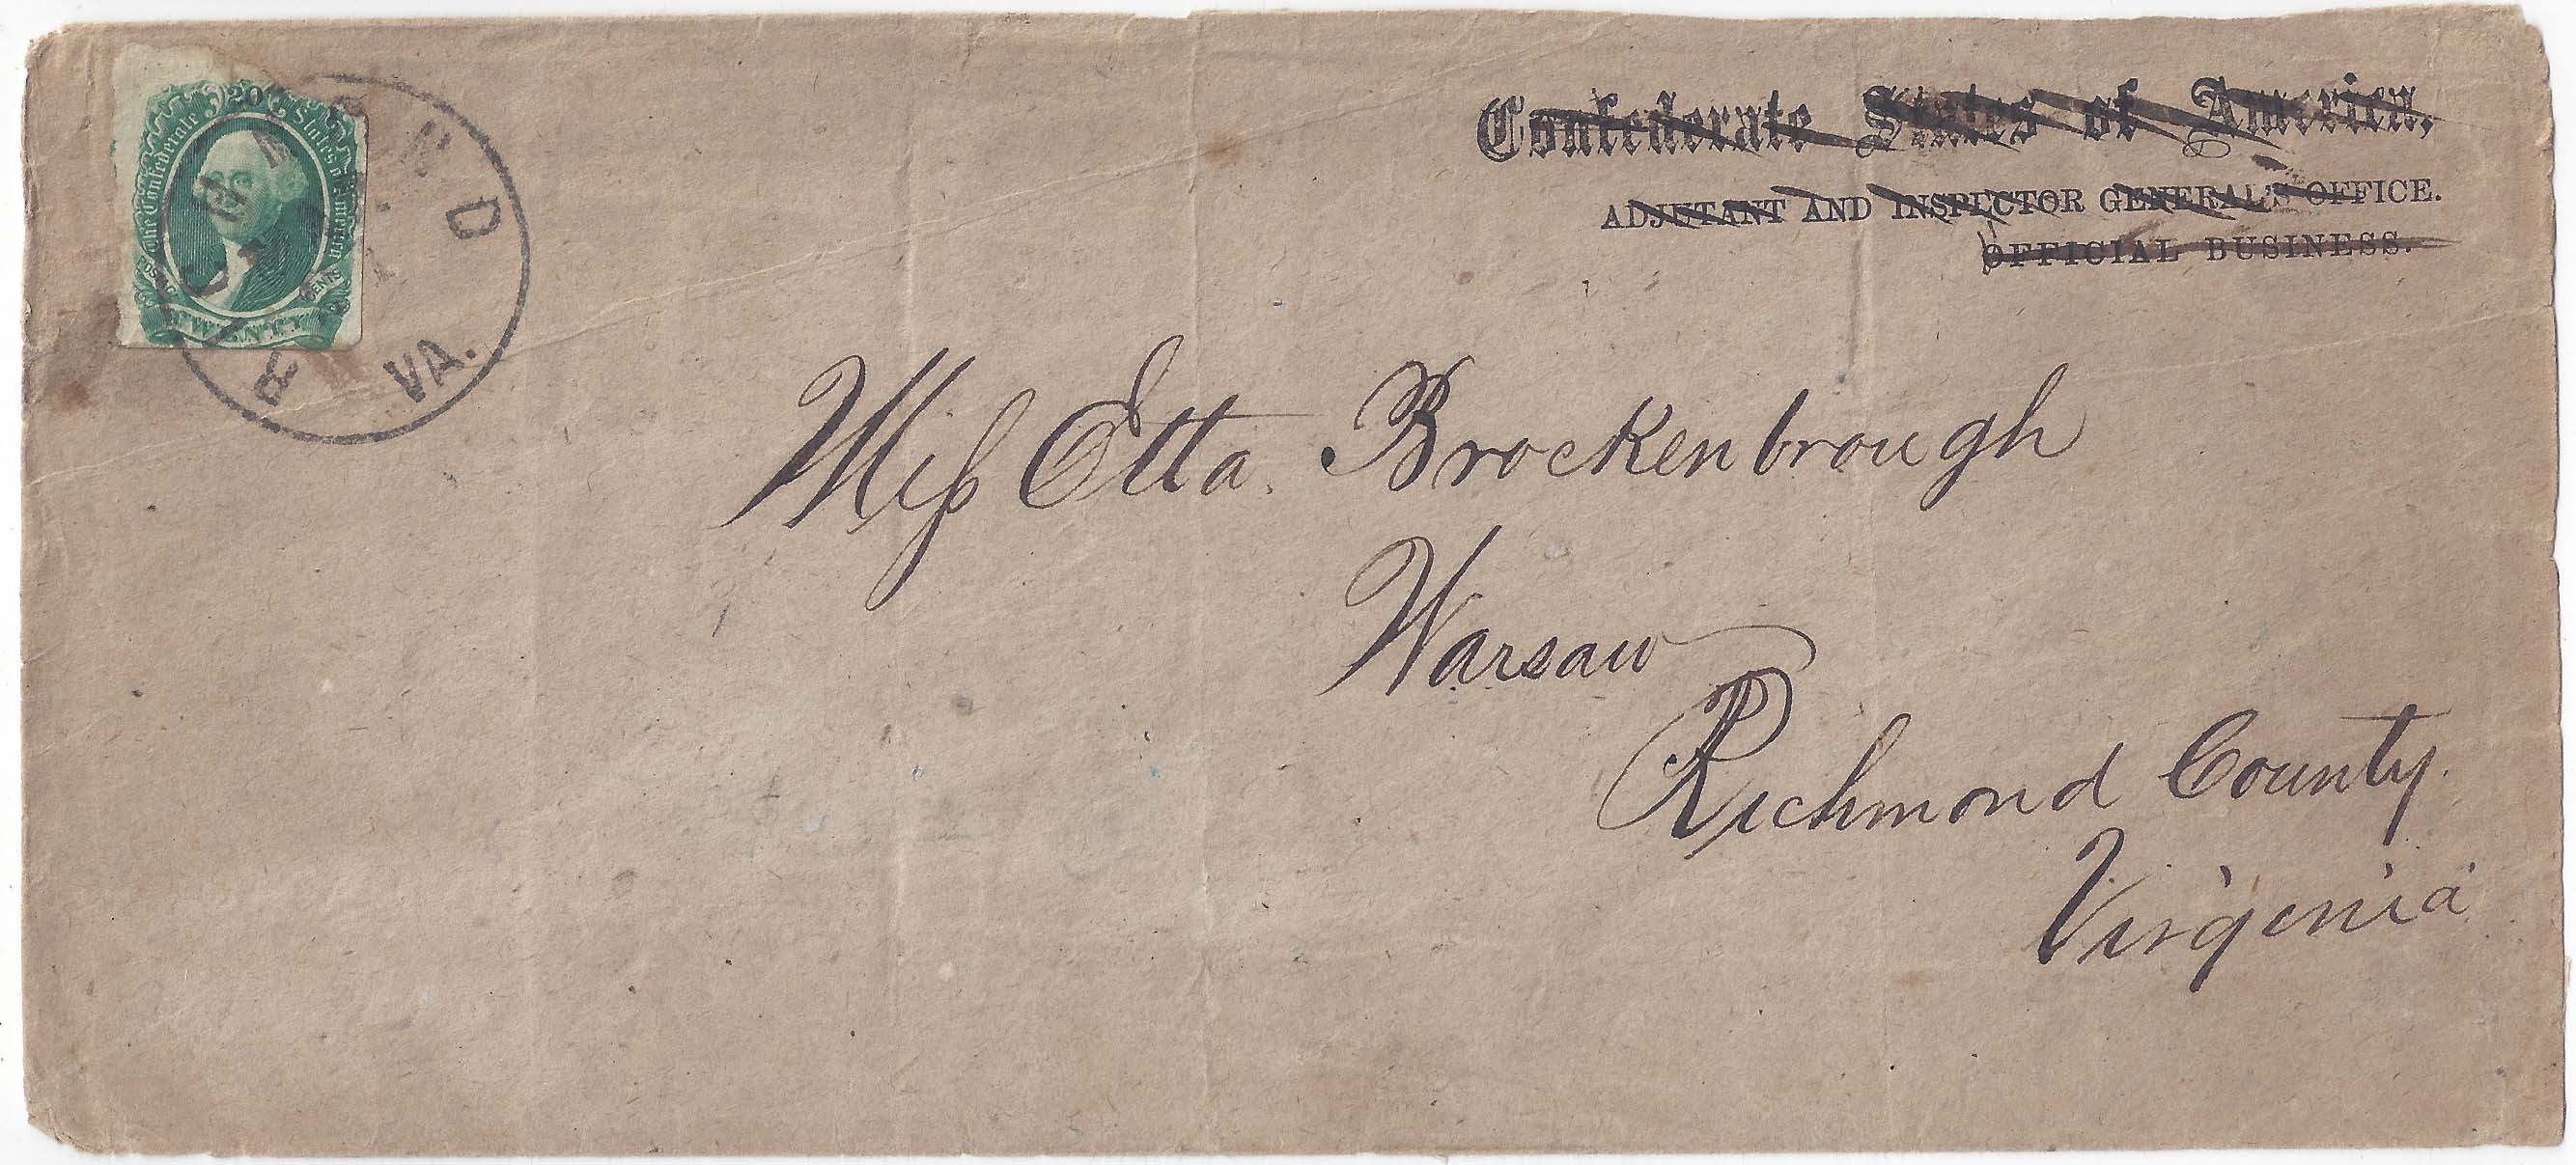 20
The Confederate States of America
POSTAGE CENTS
TWENTY
RICHMOND
VA.
Confederate States of America,
ADJUTANT AND INSPECTOR GENERAL'S OFFICE.
OFFICIAL BUSINESS.
Miſs Etta. Brockenbrough
Warsaw
Richmond County.
Virginia